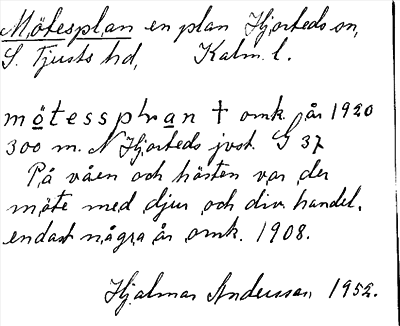 Mötesplan en plan Hjorteds sn,
S. Tjusts hd, Kalm. l.
mötessplvan † omk. år 1920
300 m. N Hjorteds jvst. G 37
På våen och hösten var der
möte med djur och div. handel.
endast några år omk. 1908.
Hjalmar Andersson 1952.